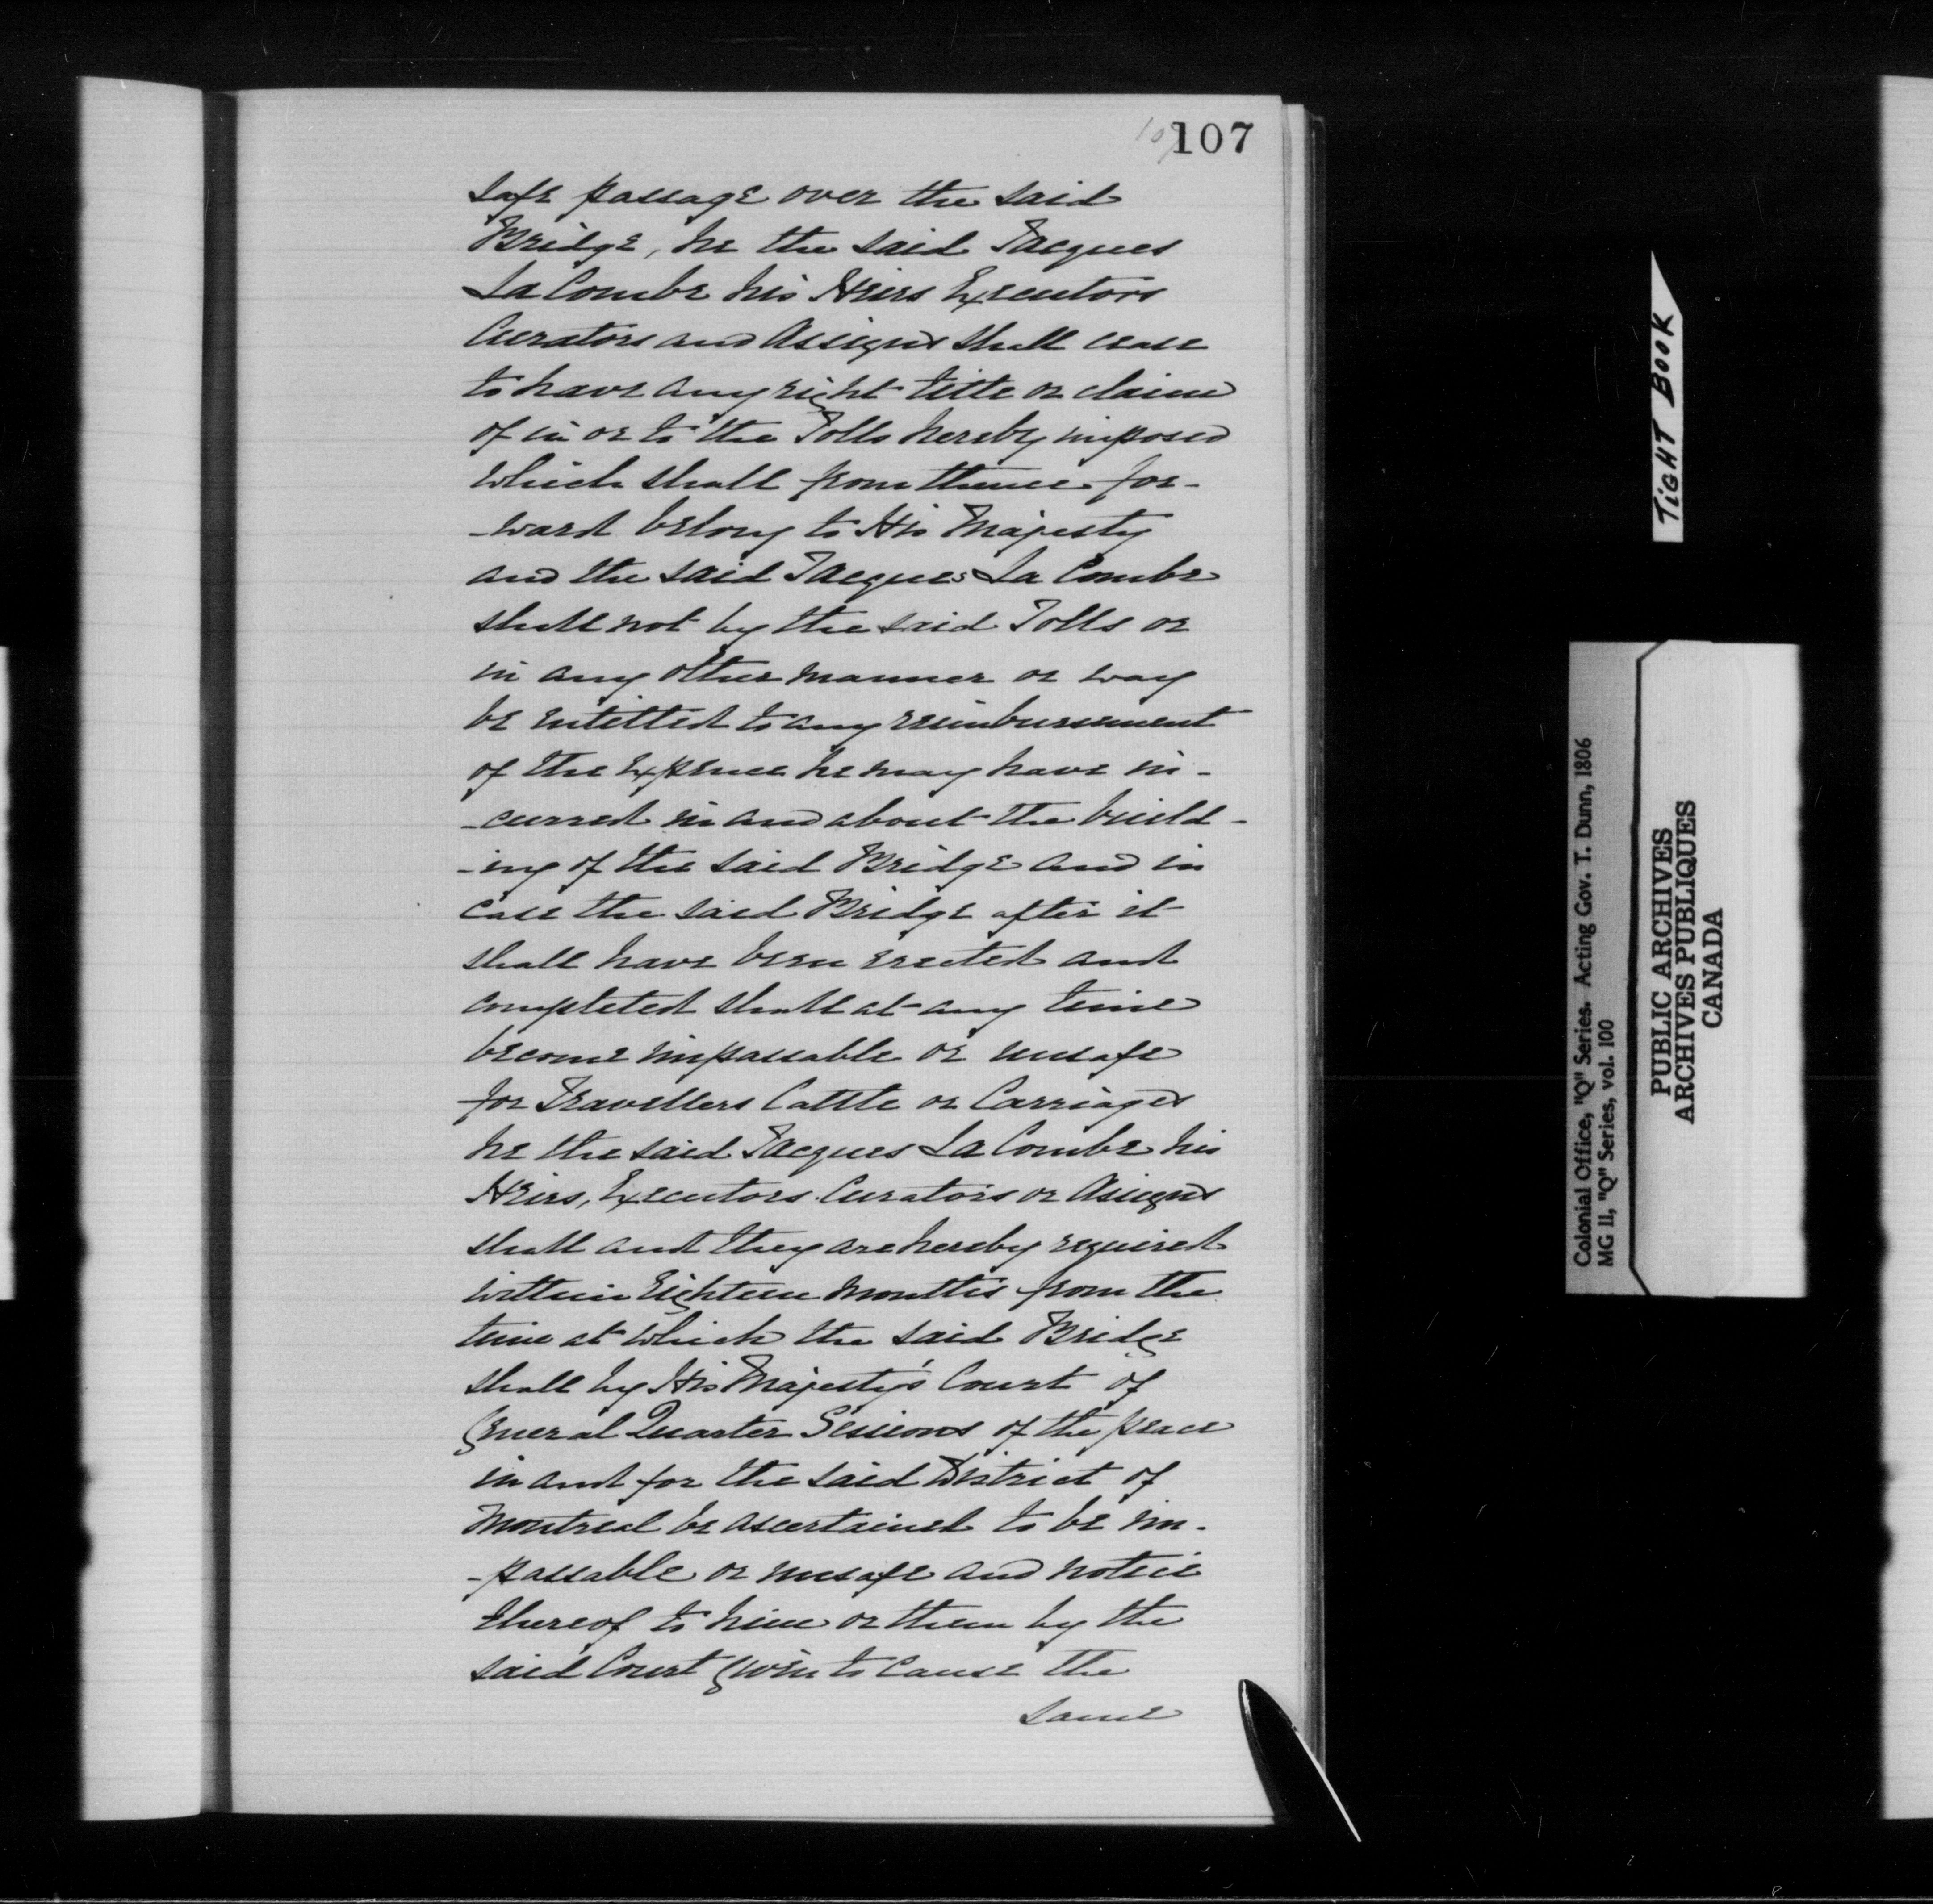 107
107
safe passage over the said
Bridge, he the said Jacques
La Combe his Heirs Executors
Curators and Assigns shall cease
to have any right title or claim
of in or to the Tolls hereby imposed
which shall from thence for-
-ward belong to His Majesty
and the said Jacques La Combe
shall not by the said Tolls or
in any other manner or way
be entitled to any reimbursement
of the Expence he may have in-
-curred in and about the build-
-ing of the said Bridge and in
case the said Bridge after it
shall have been erected and
completed shall at any time
become impassable or unsafe
for Travellers Cattle or Carriages
he the said Jacques La Combe his
Heirs, Executors Curators or Assigns
shall and they are hereby required
within Eighteen Months from the
time at which the said Bridge
shall by His Majesty's Court of
General Quarter Sessions of the peace
in and for the said District of
Montreal be ascertained to be im-
-passable or unsafe and notice
thereof to him or them by the
said Court given to cause the
same
TIGHT BOOK
Colonial Office, "Q" Series. Acting Gov. T. Dunn, 1806
MG 11, "Q" Series, vol. 100
PUBLIC ARCHIVES
ARCHIVES PUBLIQUES
CANADA